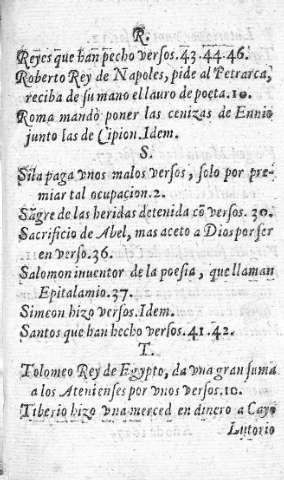 R.
Reyes que han hecho versos.43.44.46.
Roberto Rey de Napoles, pide al Petrarca,
reciba de su mano el lauro de poeta.10.
Roma mandò poner las cenizas de Ennio
junto las de Cipion.Idem.
S.
Sila paga vnos malos versos, solo por pre-
miar tal ocupacion.2.
Sãgre de las heridas detenida cõ versos. 30.
Sacrificio de Abel, mas aceto a Dios por ser
en verso.36.
Salomon inuentor de la poesia, que llaman
Epitalamio.37.
Simeon hizo versos.Idem.
Santos que han hecho versos.41.42.
T.
Tolomeo Rey de Egypto, da vna gran suma
a los Atenienses por vnos versos.10.
Tiberio hizo vna merced en dinero a Cayo
Lutorio